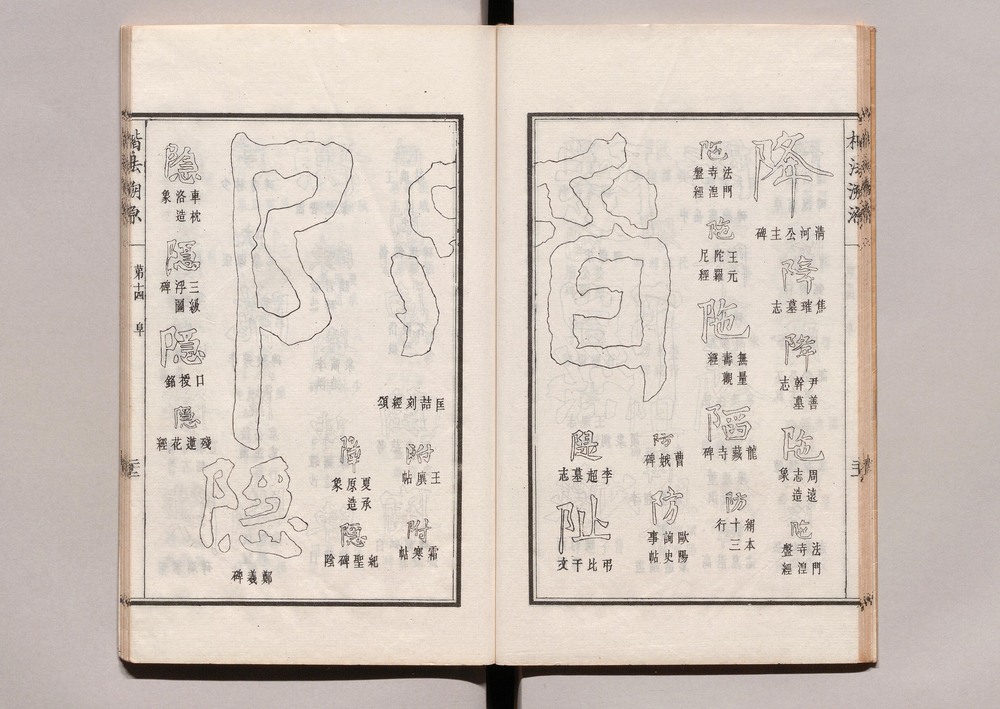 降
清河公主碑
降
焦璀墓志
降
尹善幹墓志
陁
周遠志造象
陁
法門寺湼盤經
陁
法門寺湼盤經
陁
王元陀羅尼經
陁
無量壽觀經
龍藏寺碑
防
絹本十三行
防
曹娥碑
防
歐陽詢史事帖
隄
李超墓志
阯
弔比干文
匡喆刻經頌
附
王廙帖
附
霜寒帖
障
夏承原造象
隱
紀聖碑陰
隱
鄭羲碑
隱
車枕洛造象
隱
三級浮圖碑
隱
口援銘
隱
殘蓮花經
楷法溯源
第十四
阜